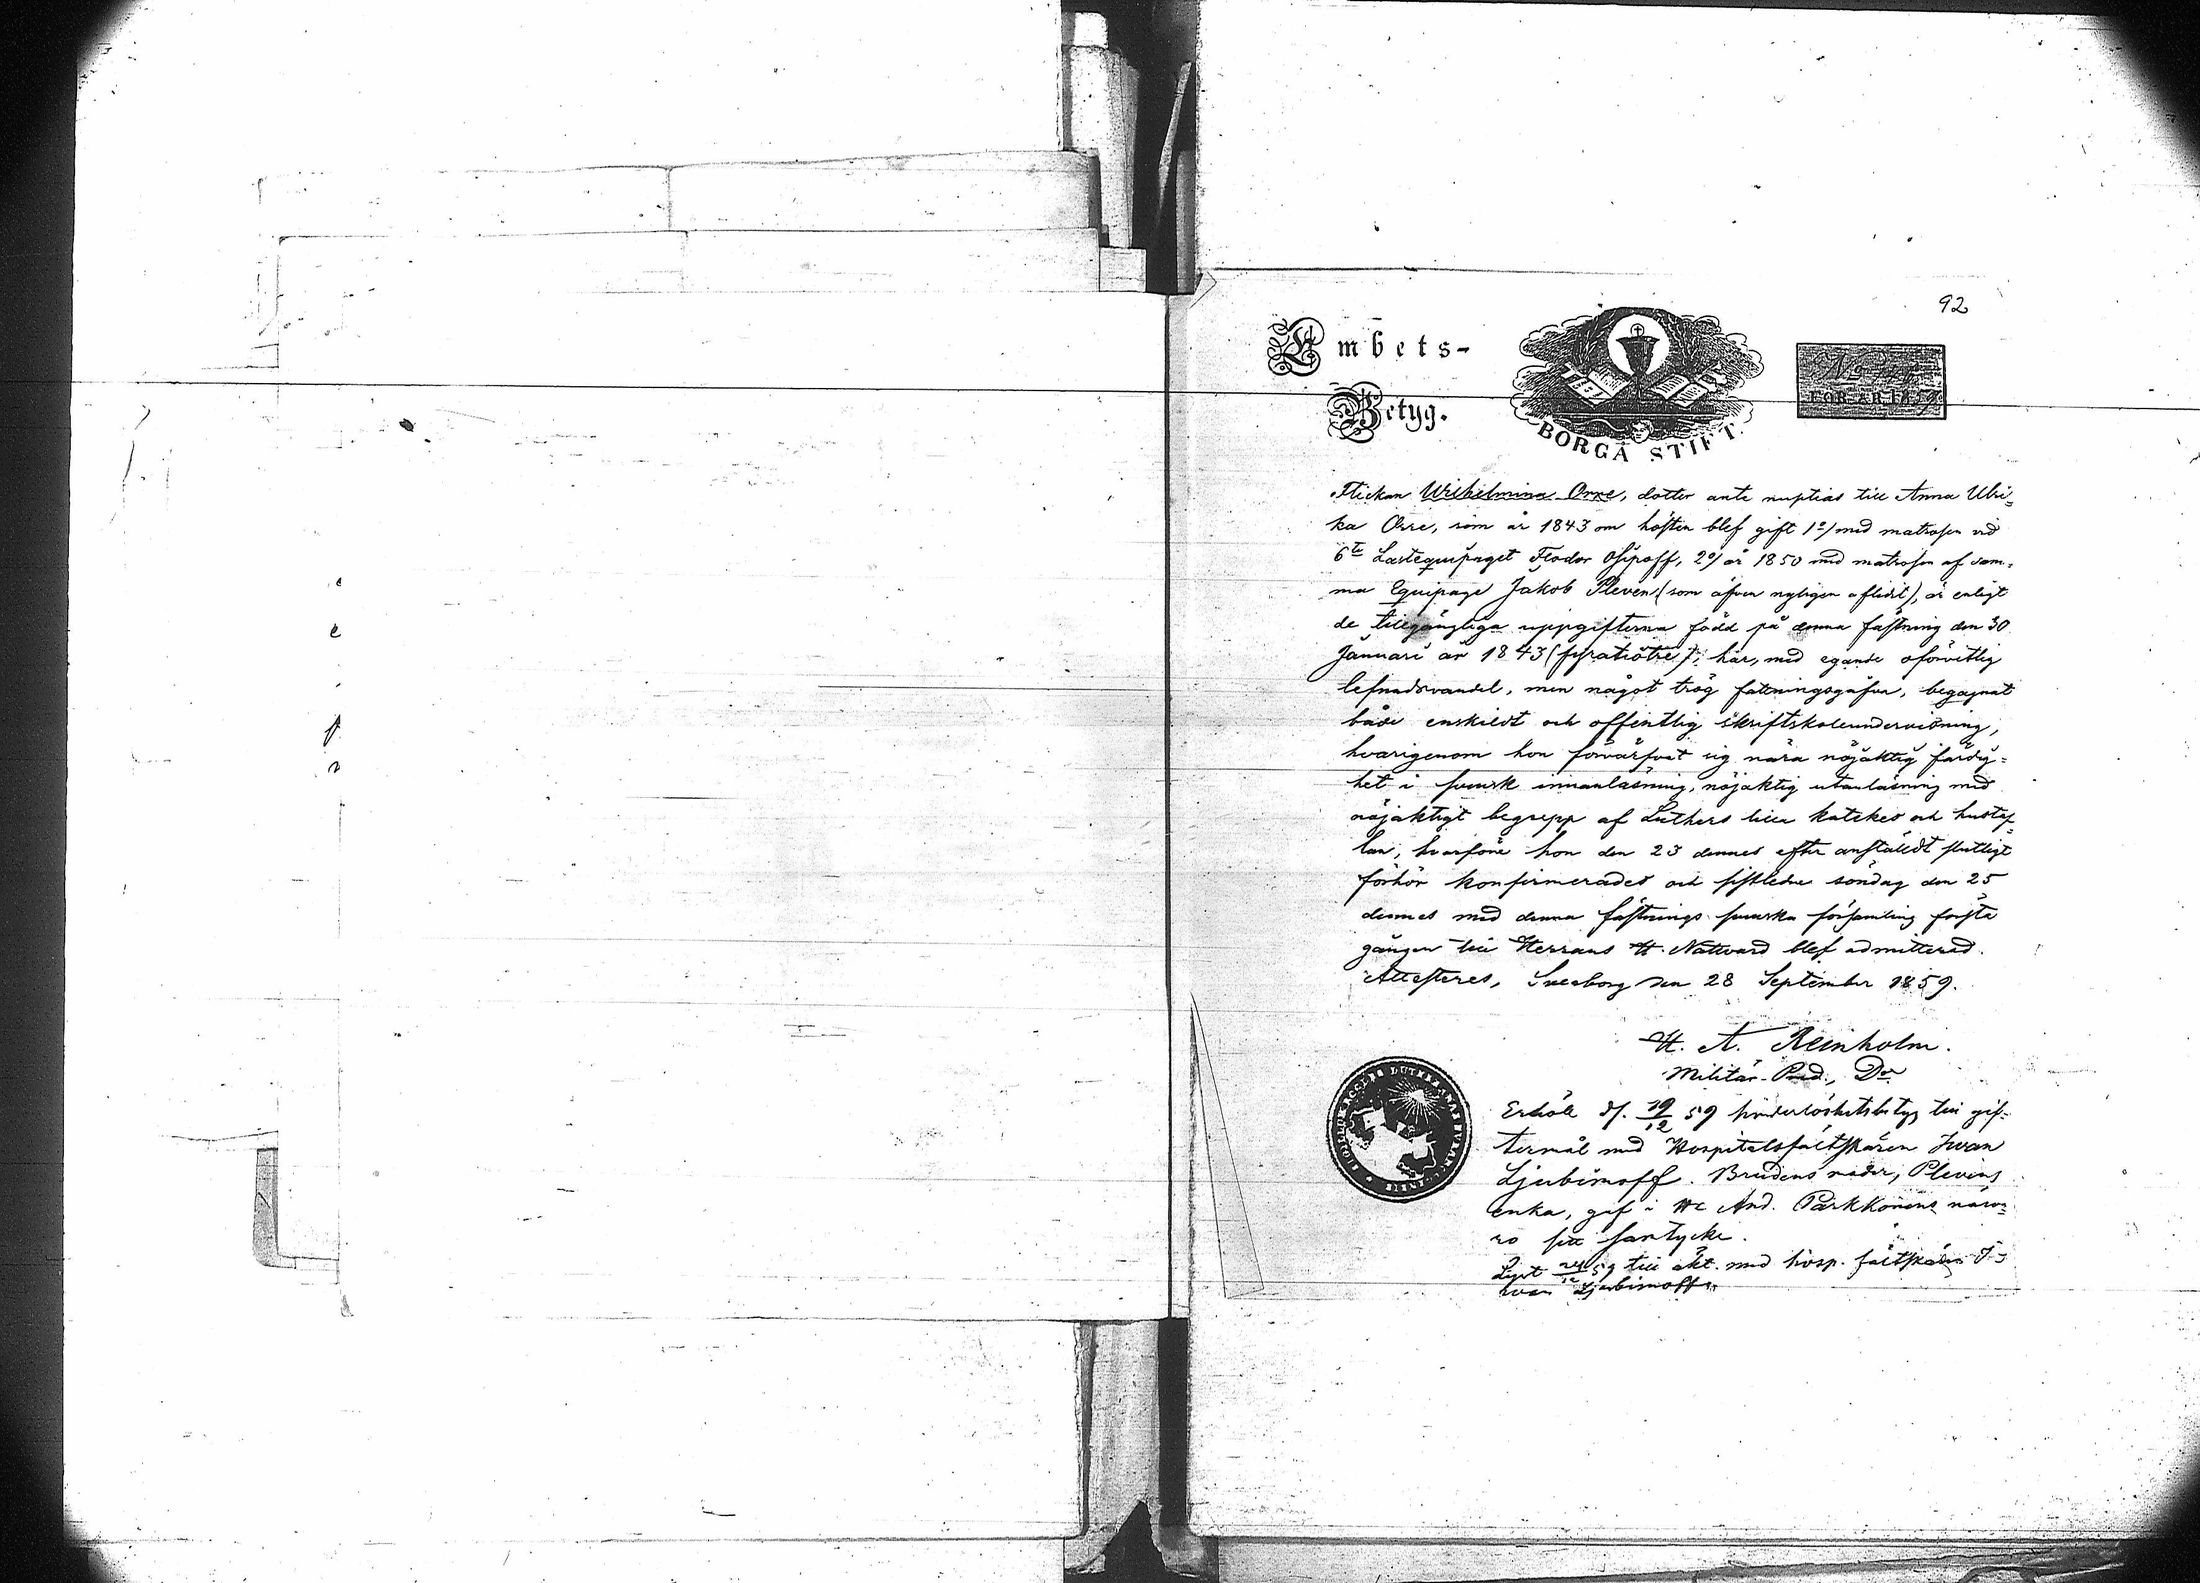 92
Embets-
Betyg.
BORGÅ STIFT.
FÖR ÅR 1859
Flickan Wilhelmina Orre, dotter ante nuptias till Anna Ulri-
ka Orre, som år 1843 om hösten blef gift 1º/ med matrosen vid
6te Lastequipaget Feodor Osipoff, 2º/ år 1850 med matrosen af sam-
ma Equipage Jakob Pleven (som äfven nyligen aflidit), är enligt
de tillgängliga uppgifterna född på denna fästning den 30
Januari år 1843 (fyratiotre); har, med egande oförvitlig
lefnadsvandel, men något trög fattningsgåfva, begagnat
både enskildt och offentlig skriftskoleundervisning,
hvarigenom hon förvärfvat sig nära nöjaktig färdig-
het i svensk innanläsning, nöjaktig utanläsning med
nöjaktigt begrepp af Luthers lilla katekes och hustaf-
lan, hvarföre hon den 23 dennes efter anstäldt slutligt
förhör konfirmerades och sistledne söndag den 25
dennes med denna fästnings svenska församling första
gången till Herrans H. Nattvard blef admitterad.
Attesteres, Sveaborg den 28 September 1859.
H. A. Reinholm.
Militär-Pred., Dor
Erhöll d. 19/12 59 hinderlöshetsbetyg till gif-
termål med Hospitalsfältskären Iwan
Ljubimoff. Brudens moder, Plevens
enka, gaf i And. Parkkonens närva-
ro sitt samtycke.
Lyst 24/12 59 till äkt. med hosp. fältskären I-
wan Ljubimoff.